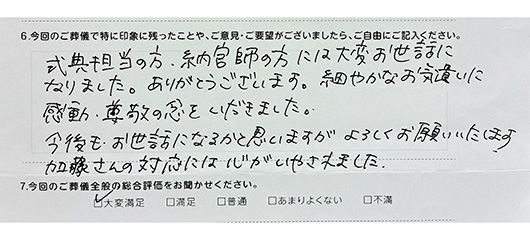 6.今回のご葬儀で特に印象に残ったことや、ご意見・ご要望がございましたら、ご自由にご記入ください。
式典担当の方、納官師の方には大変お世話に
なりました。ありがとうございます。細やかなお気遣いに
感動・尊敬の念をいだきました。
今後も お世話になるかと思いますが よろしくお願いいたします
加藤さんの対応には 心がいやされました.
7.今回のご葬儀全般の総合評価をお聞かせください。
☑大変満足 □満足 □普通 □あまりよくない □不満